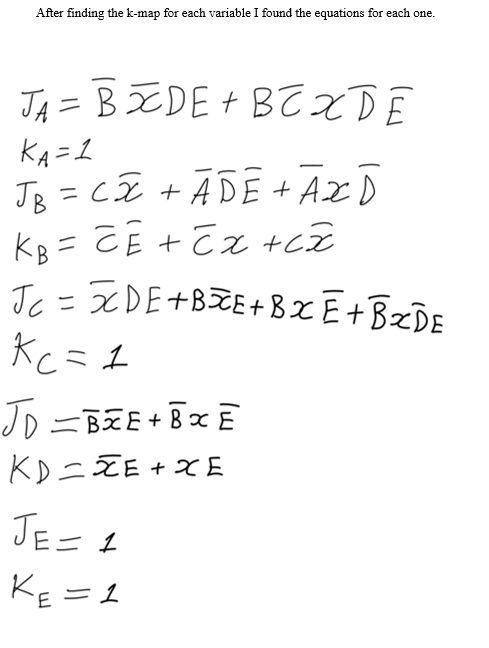 After finding the k-map for each variable I found the equations for each one.
J_A = B̅ x̅ D E + B C̅ x D̅ E̅
K_A = 1
J_B = C x̅ + A̅ D̅ E̅ + A̅ x D̅
K_B = C̅ E̅ + C̅ x + C x̅
J_C = x̅ D E + B x̅ E + B x E̅ + B̅ x D̅ E
K_C = 1
J_D = B̅ x̅ E + B̅ x E̅
K_D = x̅ E + x E
J_E = 1
K_E = 1